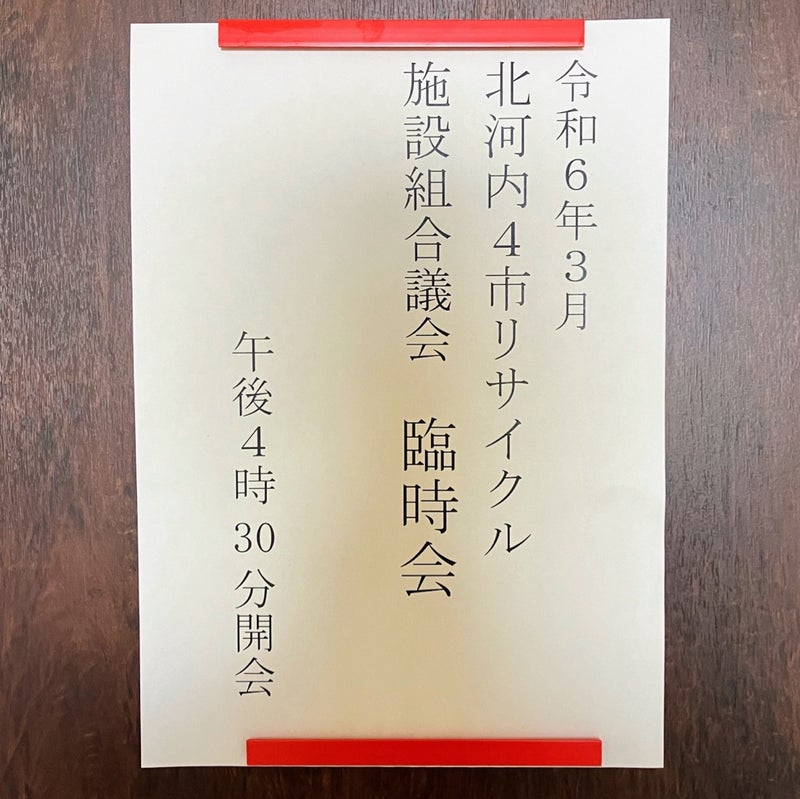 令和６年３月
北河内４市リサイクル
施設組合議会　臨時会
午後４時30分開会